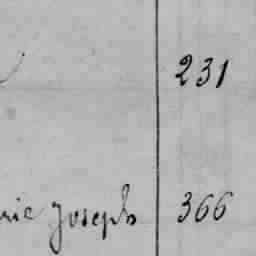 231
Joseph 366